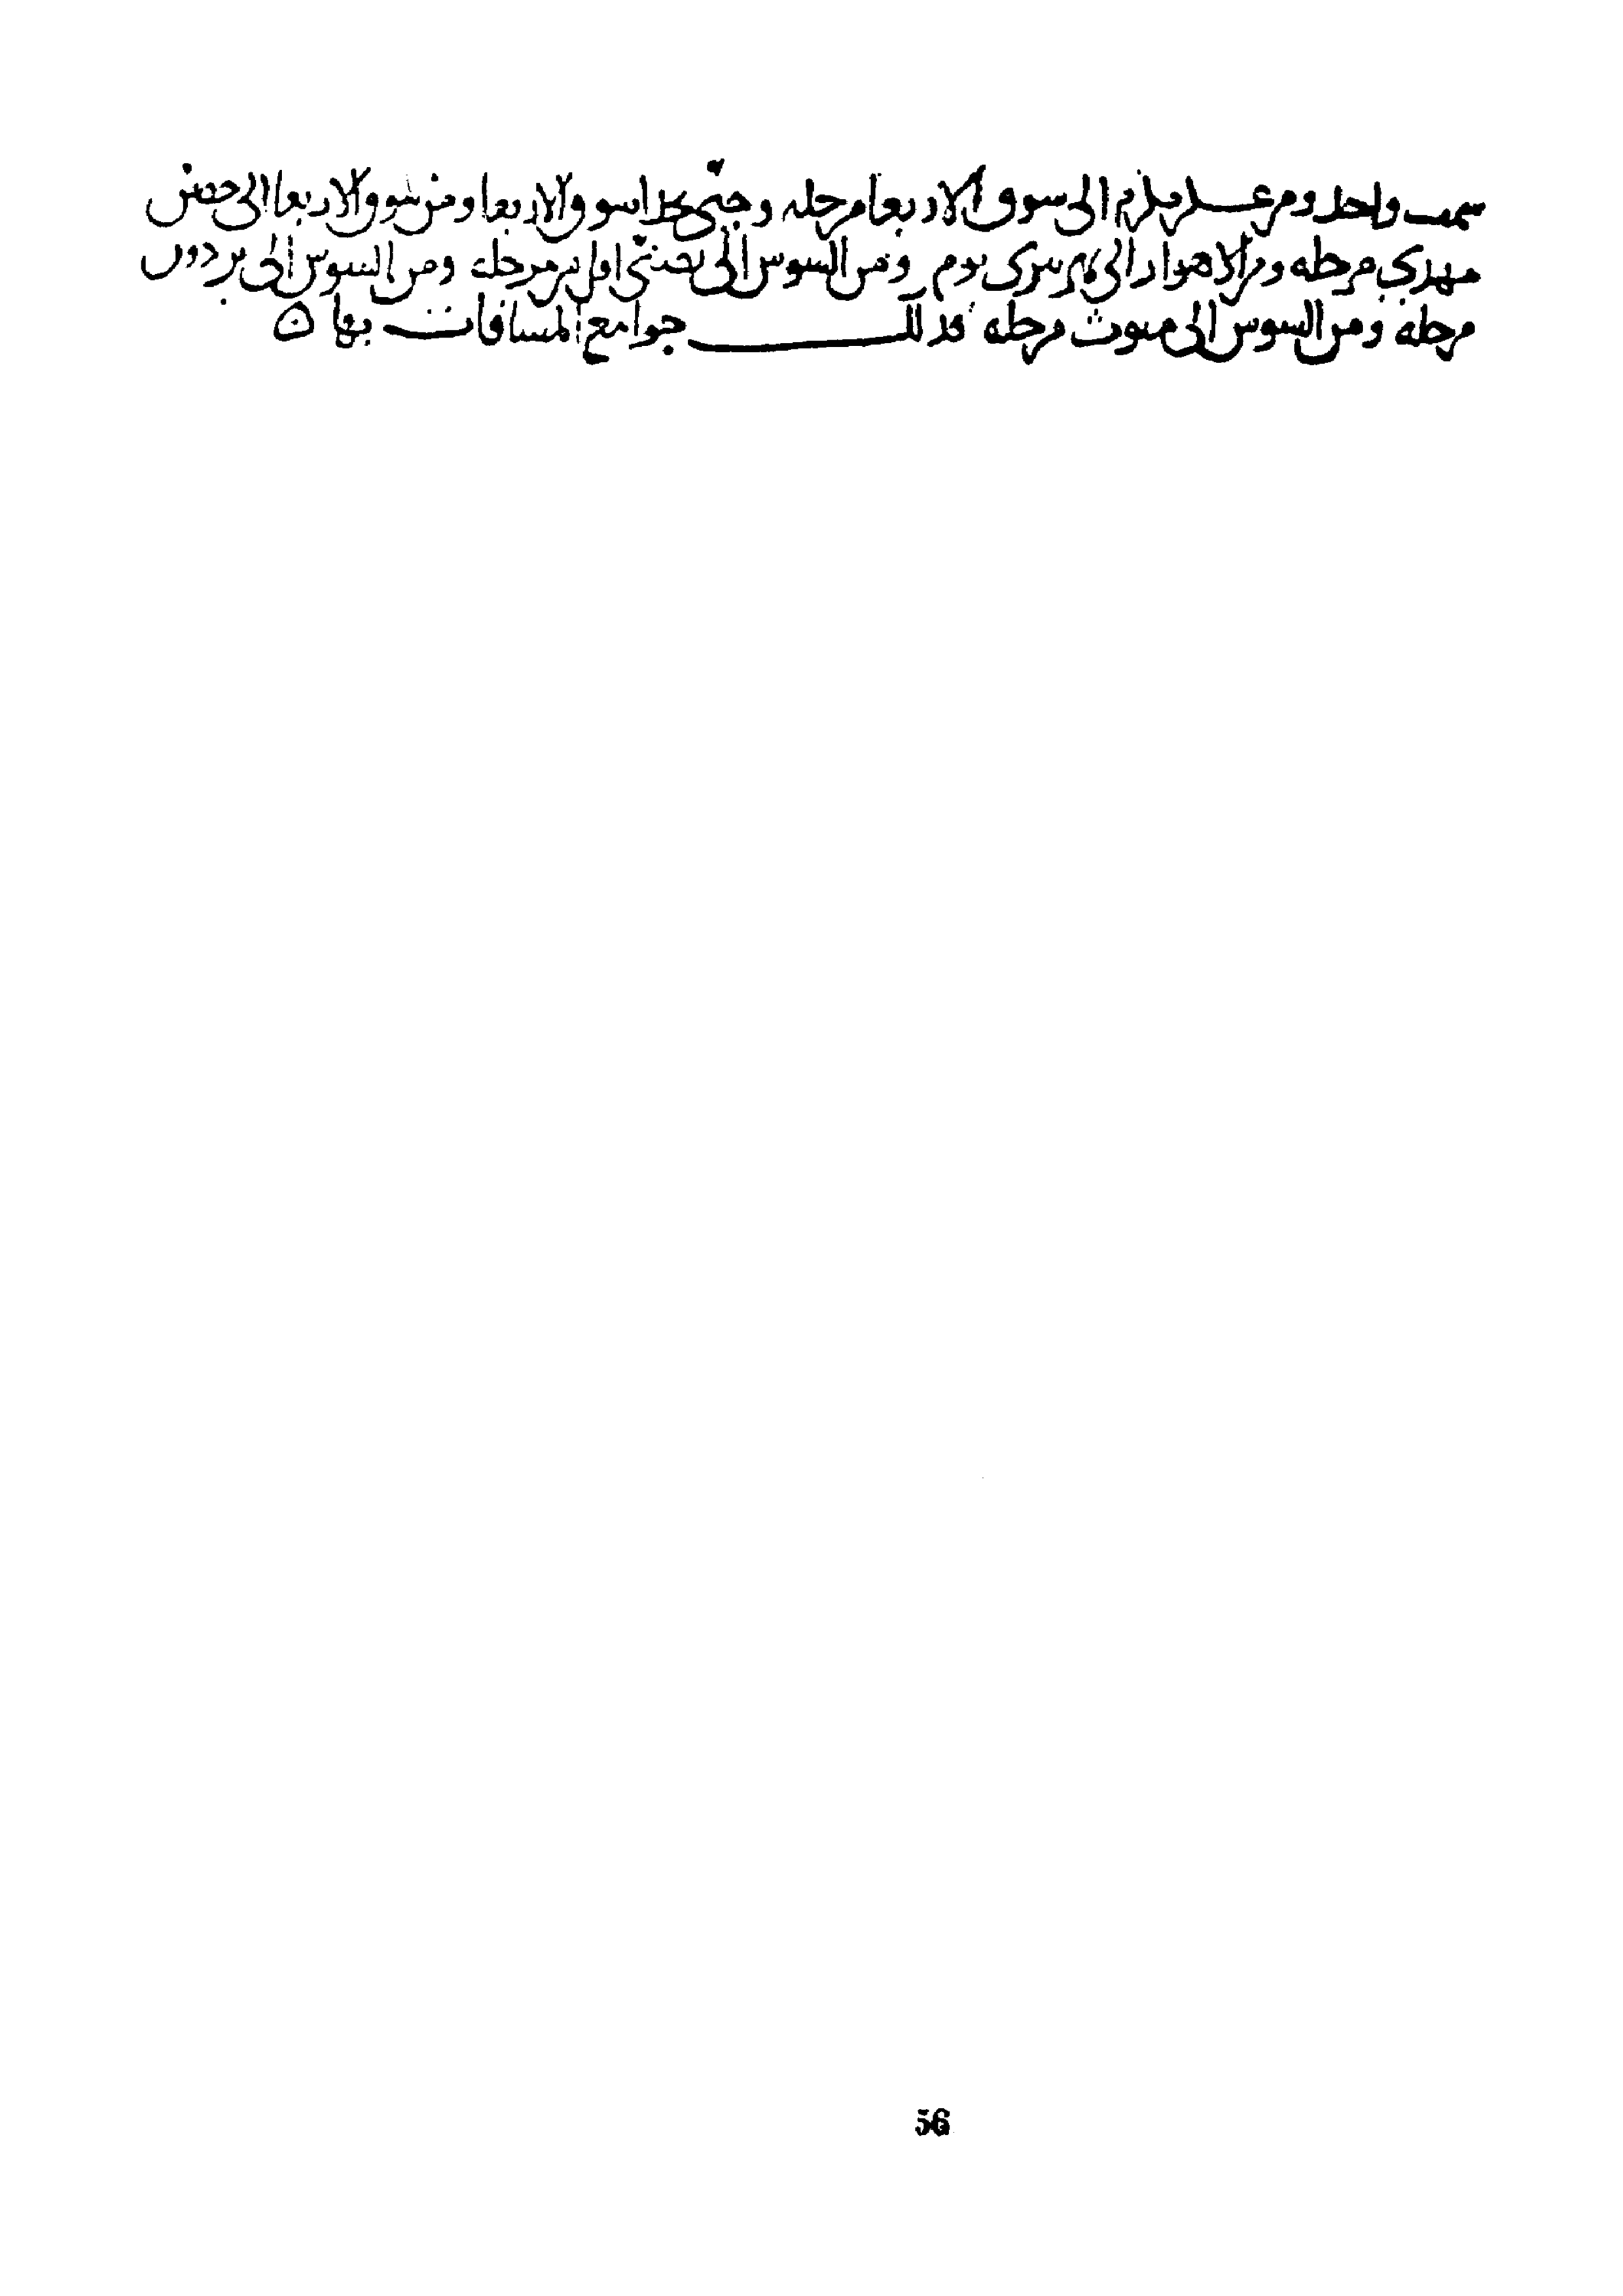 سمت واحد ومن عسكر مكرم الى سوق الاربعا مرحله وجبى سوق الاربعا ومن سوق الاربعا الى حصن
مهدي مرحله ومن الاهواز الى نهر تيرى يوم ومن السوس الى بصنى اقل من مرحله ومن السوس الى بردون
مرحله ومن السوس الى متوث مرحله فذلك جوامع المسافات بها ۞
56